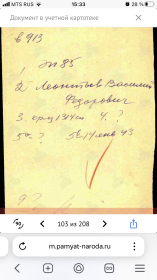 MTS RUS
15:33
22
Документ в учетной картотеке
в 913
ж 85
2) Леонтьев Василий
Федорович
3. 4. ?
5а ? 5б 14 43
103 из 208
m.pamyat-naroda.ru